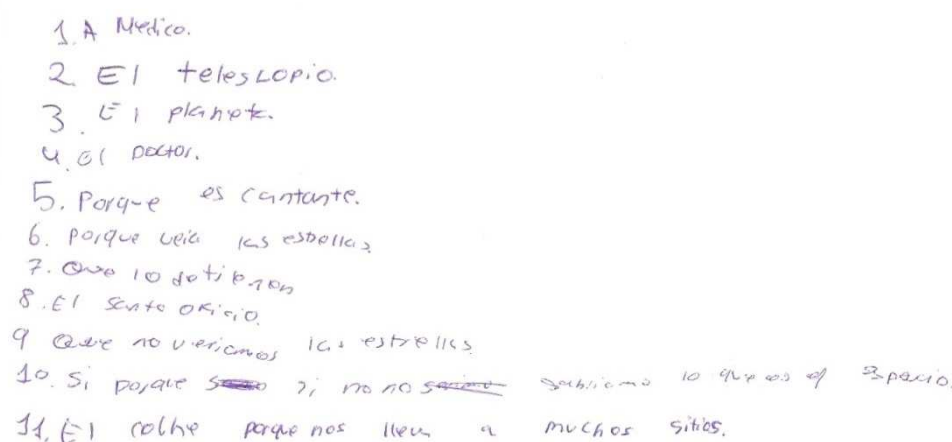 1. A Medico.
2. El telescopio.
3. El planeta.
4. el Doctor.
5. Porque es cantante.
6. porque veia las estrellas
7. Que lo detienen
8. El santo oficio.
9 Que no veriamos las estrellas
10. Si porque si no no sabriamos lo que es el espacio.
11. El colhe porque nos lleva a muchos sitios.